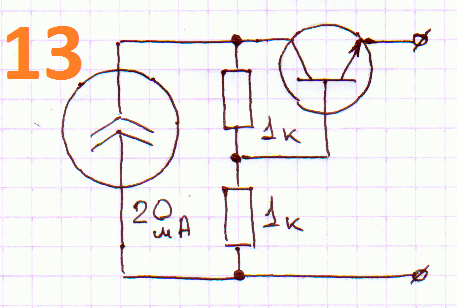 13
1к
20
мА
1к